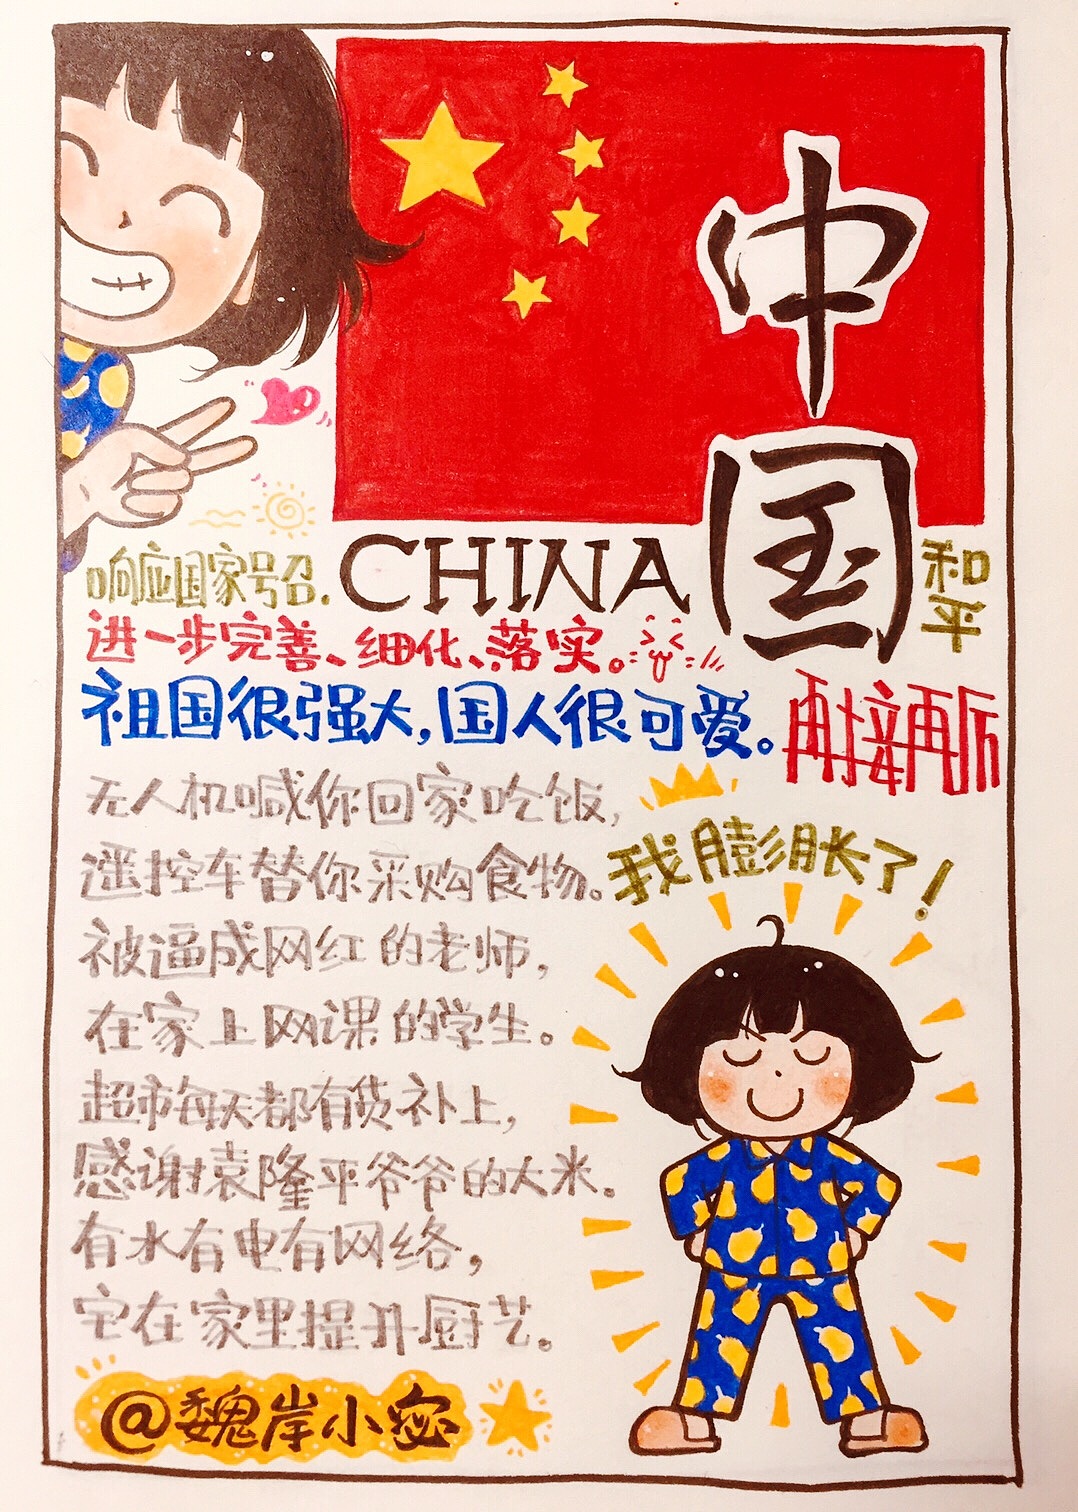 中国
CHINA
和平
响应国家号召.
进一步完善、细化、落实。
祖国很强大,国人很可爱。
再接再厉
无人机喊你回家吃饭,
遥控车替你采购食物。
我膨胀了!
被逼成网红的老师,
在家上网课的学生。
超市每天都有货补上,
感谢袁隆平爷爷的大米。
有水有电有网络,
宅在家里提升厨艺。
@魏岸小宓